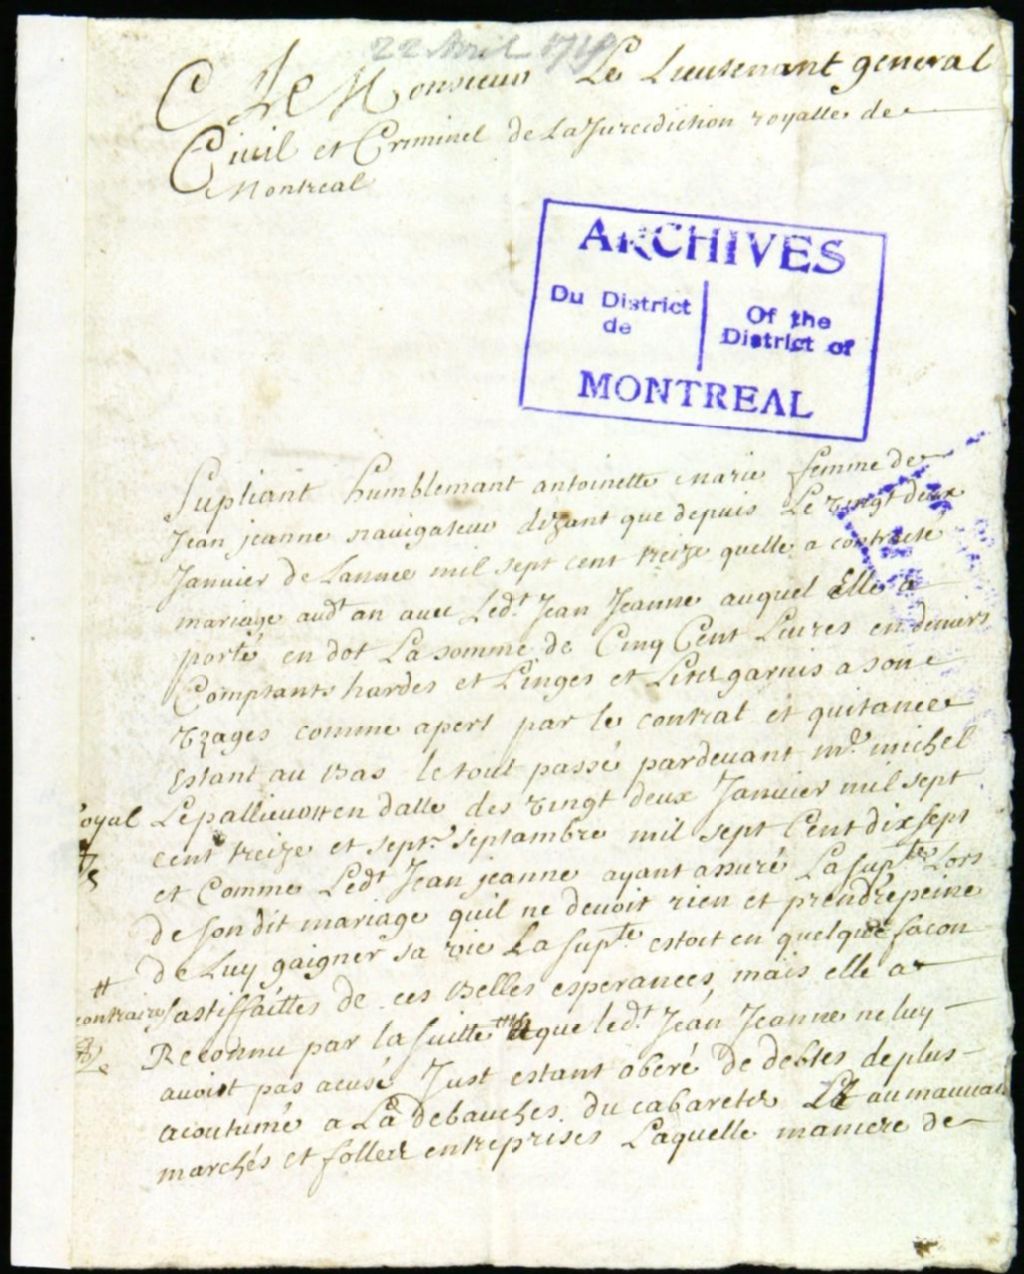 22 Avril 1719
A Monsieur Le Lieutenant general
Civil et Criminel de La Jurediction royalle de
Montreal
ARCHIVES
Du District
de
Of the
District of
MONTREAL
Supliant humblemant antoinette marie femme de
Jean jeanne navigateur dizant que depuis Le vingt deux
Janvier de Lannee mil sept cent treize quelle a contracté
mariage audt an avec Ledt Jean Jeanne auquel Elle a
porté en dot La somme de Cinq Cent Livres en deniers
Comptants hardes et Linges et Litz garnis a son
uzages comme apert par le contrat et quitance
Estant au bas le tout passé pardevant me michel
Lepallieur en datte des vingt deux Janvier mil sept
oyal
cent treize et sept septambre mil sept Cent dix sept
et Comme Ledt Jean jeanne ayant assuré La supte Lors
de son dit mariage quil ne devoit rien et prendre peine
de Luy gaigner sa vie La supte estoit en quelque facon
contraire
sastiffaittes de ces belles esperances, mais elle a
Reconnu par la suitte que ledt Jean Jeanne ne luy
avoit pas acusé Just estant oberé de debtes de plus
acoutumé a La debauches du cabaretz au mauvais
marchés et follez entreprises Laquelle maniere de